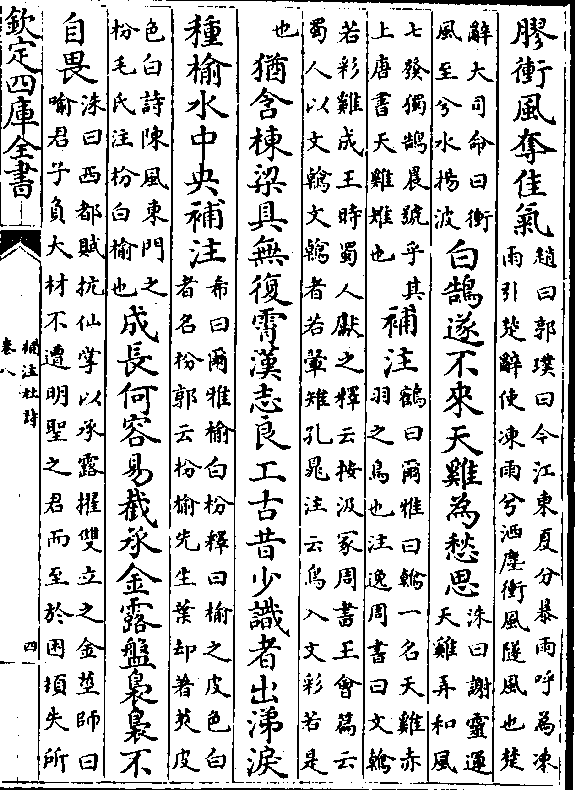 膠衝風奪佳氣
趙曰郭璞曰今江東夏分暴雨呼為凍
雨引楚辭使凍雨兮洒塵衝風隧風也楚
辭大司命曰衝
風至兮水揚波
白鵠遂不來天雞為愁思
洙曰謝靈運
天雞弄和風
七發獨鵠晨號乎其
上唐書天雞雉也
補注
鶴曰爾雅曰鶾一名天雞赤
羽之鳥也注逸周書曰文鶾
若彩雞成王時蜀人獻之釋云按汲冢周書王會篇云
蜀人以文鶾文鶾者若翬雉孔晁注云鳥入文彩若是
也
猶含棟梁具無復霄漢志良工古昔少識者出涕淚
種榆水中央補注
希曰爾雅榆白枌釋曰榆之皮色白
者名枌郭云枌榆先生葉却著莢皮
色白詩陳風東門之
枌毛氏注枌白榆也
成長何容易截承金露盤裊裊不
自畏
洙曰西都賦抗仙掌以承露擢雙立之金莖師曰
喻君子負大材不遭明聖之君而至於困頓失所
欽定四庫全書
補注杜詩
卷八
四